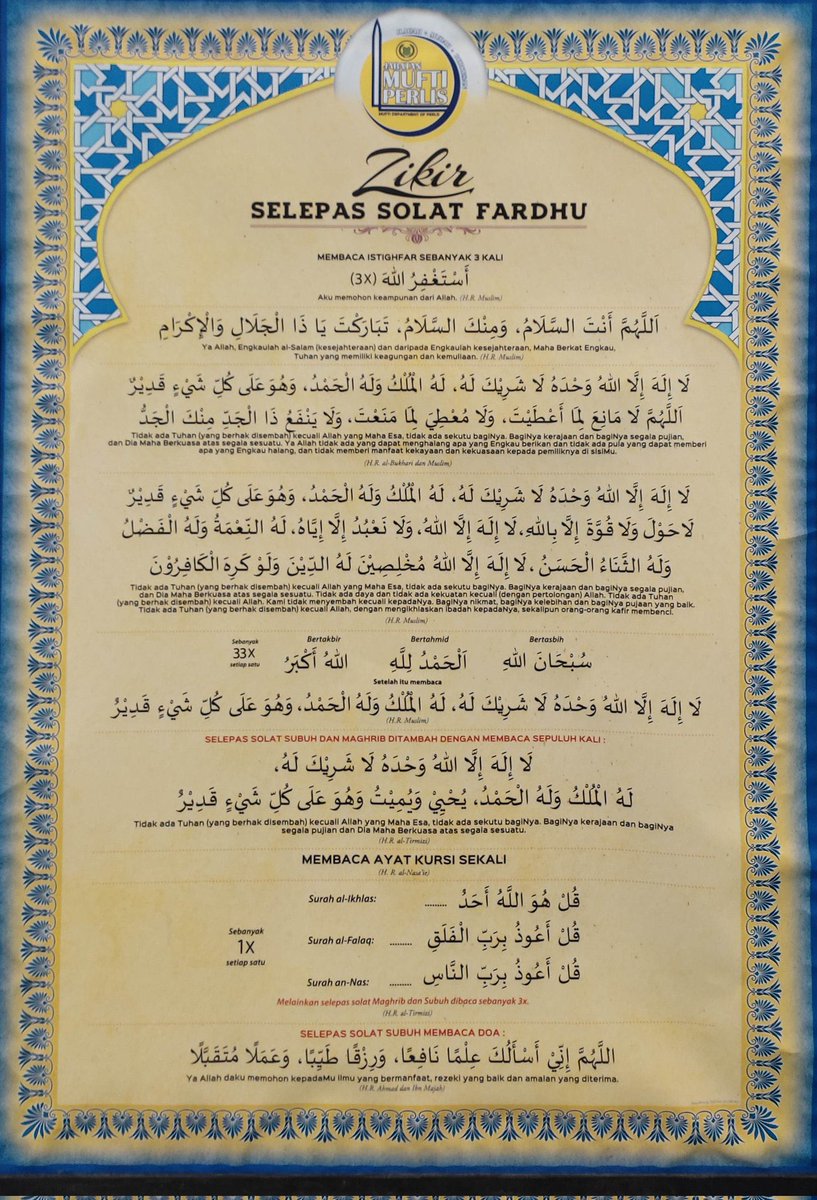 JABATAN
MUFTI
PERLIS
MUFTI DEPARTMENT OF PERLIS
Zikir
SELEPAS SOLAT FARDHU
MEMBACA ISTIGHFAR SEBANYAK 3 KALI
أَسْتَغْفِرُ اللهَ (3X)
Aku memohon keampunan dari Allah. (H.R. Muslim)
اَللَّهُمَّ أَنْتَ السَّلَامُ، وَمِنْكَ السَّلَامُ، تَبَارَكْتَ يَا ذَا الْجَلَالِ وَالْإِكْرَامِ
Ya Allah, Engkaulah al-Salam (kesejahteraan) dan daripada Engkaulah kesejahteraan, Maha Berkat Engkau,
Tuhan yang memiliki keagungan dan kemuliaan. (H.R. Muslim)
لَا إِلَهَ إِلَّا اللهُ وَحْدَهُ لَا شَرِيْكَ لَهُ، لَهُ الْمُلْكُ وَلَهُ الْحَمْدُ، وَهُوَ عَلَى كُلِّ شَيْءٍ قَدِيْرٌ
اَللَّهُمَّ لَا مَانِعَ لِمَا أَعْطَيْتَ، وَلَا مُعْطِيَ لِمَا مَنَعْتَ، وَلَا يَنْفَعُ ذَا الْجَدِّ مِنْكَ الْجَدُّ
Tidak ada Tuhan (yang berhak disembah) kecuali Allah yang Maha Esa, tidak ada sekutu bagiNya. BagiNya kerajaan dan bagiNya segala pujian,
dan Dia Maha Berkuasa atas segala sesuatu. Ya Allah tidak ada yang dapat menghalang apa yang Engkau berikan dan tidak ada pula yang dapat memberi
apa yang Engkau halang, dan tidak memberi manfaat kekayaan dan kekuasaan kepada pemiliknya di sisiMu.
(H.R. al-Bukhari dan Muslim)
لَا إِلَهَ إِلَّا اللهُ وَحْدَهُ لَا شَرِيْكَ لَهُ، لَهُ الْمُلْكُ وَلَهُ الْحَمْدُ، وَهُوَ عَلَى كُلِّ شَيْءٍ قَدِيْرٌ
لَا حَوْلَ وَلَا قُوَّةَ إِلَّا بِاللهِ، لَا إِلَهَ إِلَّا اللهُ، وَلَا نَعْبُدُ إِلَّا إِيَّاهُ، لَهُ النِّعْمَةُ وَلَهُ الْفَضْلُ
وَلَهُ الثَّنَاءُ الْحَسَنُ، لَا إِلَهَ إِلَّا اللهُ مُخْلِصِيْنَ لَهُ الدِّيْنَ وَلَوْ كَرِهَ الْكَافِرُوْنَ
Tidak ada Tuhan (yang berhak disembah) kecuali Allah yang Maha Esa, tidak ada sekutu bagiNya. BagiNya kerajaan dan bagiNya segala pujian,
dan Dia Maha Berkuasa atas segala sesuatu. Tidak ada daya dan tidak ada kekuatan kecuali (dengan pertolongan) Allah. Tidak ada Tuhan
(yang berhak disembah) kecuali Allah. Kami tidak menyembah kecuali kepadaNya. BagiNya nikmat, bagiNya kelebihan dan bagiNya pujaan yang baik.
Tidak ada Tuhan (yang berhak disembah) kecuali Allah, dengan mengikhlaskan ibadah kepadaNya, sekalipun orang-orang kafir membenci.
(H.R. Muslim)
Sebanyak 33X setiap satu
Bertakbir Bertahmid Bertasbih
سُبْحَانَ اللهِ اَلْحَمْدُ لِلَّهِ اللهُ أَكْبَرُ
Setelah itu membaca
لَا إِلَهَ إِلَّا اللهُ وَحْدَهُ لَا شَرِيْكَ لَهُ، لَهُ الْمُلْكُ وَلَهُ الْحَمْدُ، وَهُوَ عَلَى كُلِّ شَيْءٍ قَدِيْرٌ
(H.R. Muslim)
SELEPAS SOLAT SUBUH DAN MAGHRIB DITAMBAH DENGAN MEMBACA SEPULUH KALI :
لَا إِلَهَ إِلَّا اللهُ وَحْدَهُ لَا شَرِيْكَ لَهُ،
لَهُ الْمُلْكُ وَلَهُ الْحَمْدُ، يُحْيِيْ وَيُمِيْتُ وَهُوَ عَلَى كُلِّ شَيْءٍ قَدِيْرٌ
Tidak ada Tuhan (yang berhak disembah) kecuali Allah yang Maha Esa, tidak ada sekutu bagiNya. BagiNya kerajaan dan bagiNya
segala pujian dan Dia Maha Berkuasa atas segala sesuatu.
(H.R. al-Tirmizi)
MEMBACA AYAT KURSI SEKALI
(H. R. al-Nasa'ie)
Sebanyak
1X
setiap satu
Surah al-Ikhlas: ......... قُلْ هُوَ اللَّهُ أَحَدُ
Surah al-Falaq: ......... قُلْ أَعُوذُ بِرَبِّ الْفَلَقِ
Surah an-Nas: ......... قُلْ أَعُوذُ بِرَبِّ النَّاسِ
Melainkan selepas solat Maghrib dan Subuh dibaca sebanyak 3x.
(H.R. al-Tirmizi)
SELEPAS SOLAT SUBUH MEMBACA DOA :
اللَّهُمَّ إِنِّيْ أَسْأَلُكَ عِلْمًا نَافِعًا، وَرِزْقًا طَيِّبًا، وَعَمَلًا مُتَقَبَّلًا
Ya Allah daku memohon kepadaMu ilmu yang bermanfaat, rezeki yang baik dan amalan yang diterima.
(H.R. Ahmad dan Ibn Majah)